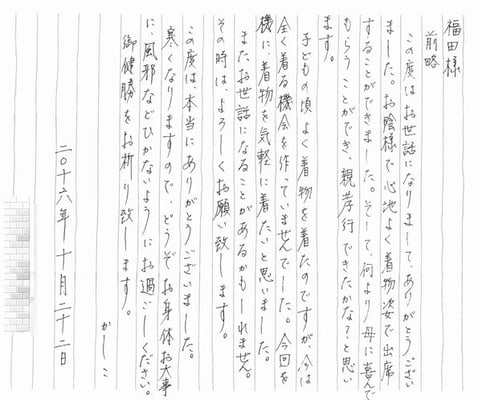 福田様
前略
この度はお世話になりまして、ありがとうござい
ました。お陰様で心地よく着物姿で出席
することができました。そして、何より母に喜んで
もらうことができ、親孝行できたかな？と思い
ます。
子どもの頃よく着物を着たのですが、今は
全く着る機会を作っていませんでした。今回を
機に、着物を気軽に着たいと思いました。
またお世話になることがあるかもしれません。
その時は、よろしくお願い致します。
この度は、本当にありがとうございました。
寒くなりますので、どうぞお身体お大事
に、風邪などひかないようにお過ごしください。
御健勝をお祈り致します。
かしこ
二〇十六年十月二十二日